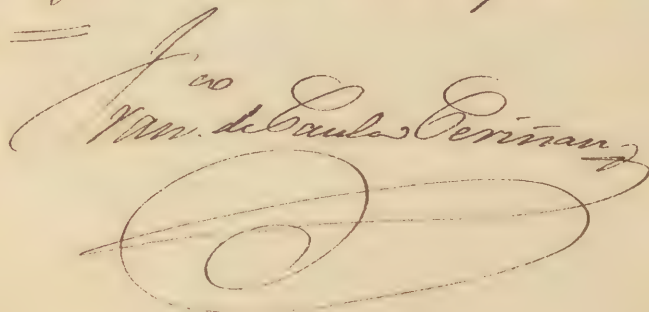 Fran.co de Paula Periñan